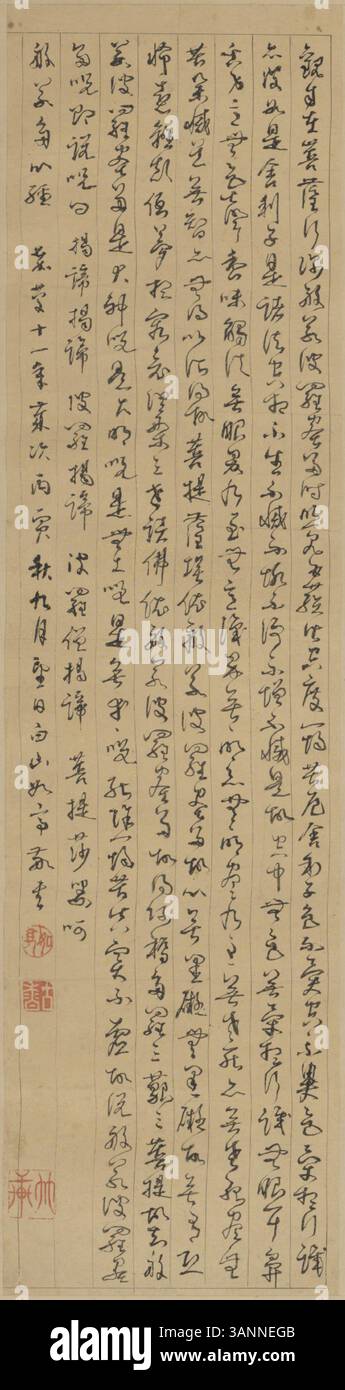 觀自在菩薩行深般若波羅蜜多時照見五蘊皆空度一切苦厄舍利子色不異空空不異色受想行識
亦復如是舍利子是諸法空相不生不滅不垢不淨不增不減是故空中無色無受想行識無眼耳鼻
舌身意無色聲香味觸法無眼界乃至無意識界無無明亦無無明盡乃至無老死亦無老死盡無
苦集滅道無智亦無得以無所得故菩提薩埵依般若波羅蜜多故心無罣礙無罣礙故無有恐
怖遠離顛倒夢想究竟涅槃三世諸佛依般若波羅蜜多故得阿耨多羅三藐三菩提故知般
若波羅蜜多是大神咒是大明咒是無上咒是無等等咒能除一切苦真實不虛故說般若波羅蜜
多咒即說咒曰 揭諦揭諦 波羅揭諦 波羅僧揭諦 菩提莎婆呵
般若多心經 嘉慶十一年歲次丙寅秋九月望日白山如亭敬書
alamy
alamy
Image ID: 3ANNEGB
www.alamy.com